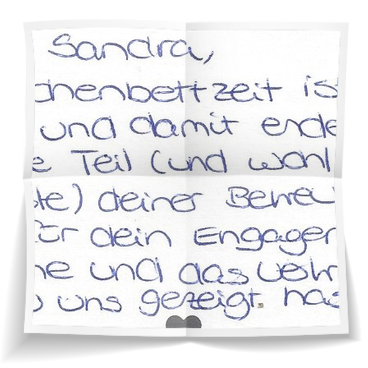 Sandra,
chenbettzeit is
und damit ende
e Teil (und wohl
ste) deiner Betreu
für dein Engager
he und das Vertr
u uns gezeigt has